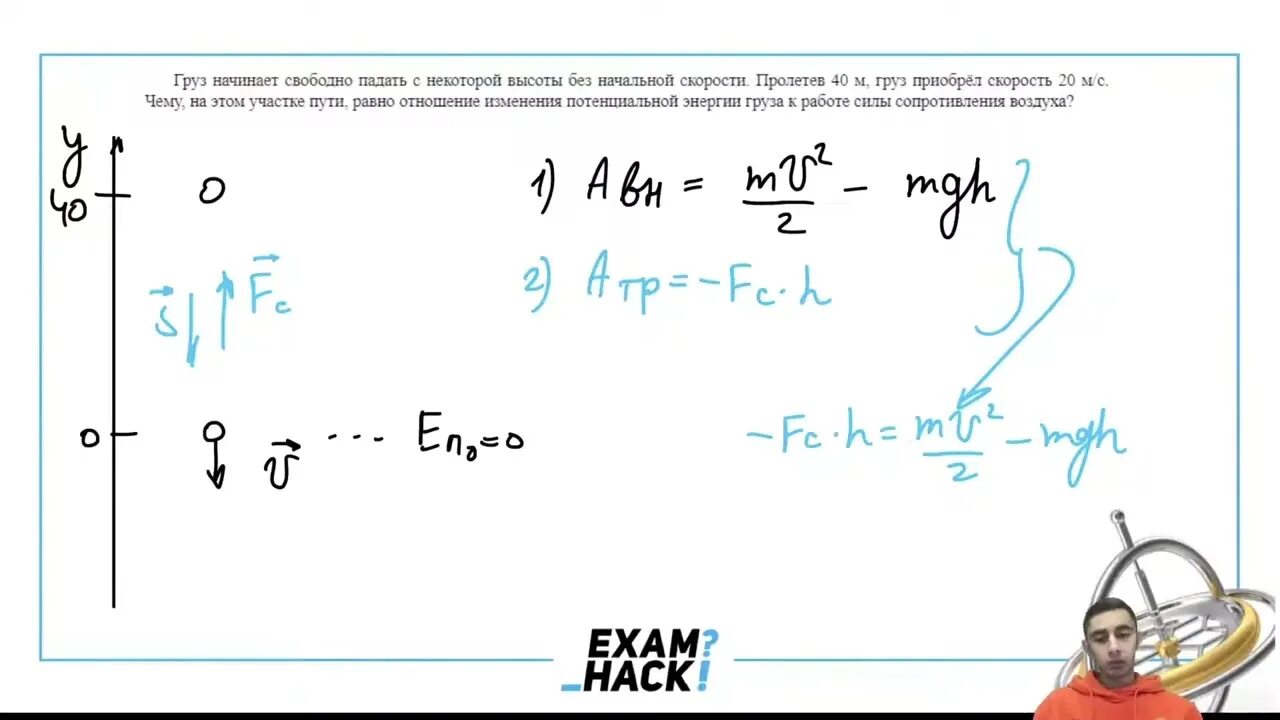 Груз начинает свободно падать с некоторой высоты без начальной скорости. Пролетев 40 м, груз приобрёл скорость 20 м/с.
Чему, на этом участке пути, равно отношение изменения потенциальной энергии груза к работе силы сопротивления воздуха?
y
40
1) Aвн = mv²/2 - mgh
2) Aтр = -Fc·h
S Fc
0
v
... Eп₀=0
-Fc·h = mv²/2 - mgh
EXAM?
_HACK!